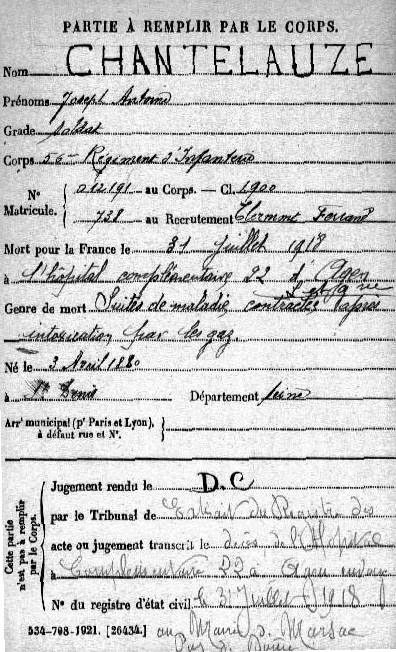 PARTIE À REMPLIR PAR LE CORPS.
Nom CHANTELAUZE
Prénoms Joseph Antoine
Grade soldat
Corps 56me Régiment d'Infanterie
N° Matricule. 012191 au Corps. — Cl. 1900
738 au Recrutement Clermont Ferrand
Mort pour la France le 31 juillet 1918
à l'hôpital complémentaire 22 d'Agen
Genre de mort Suites de maladie contractée après
intoxication par les gaz
Né le 3 Avril 1880
à St Denis Département Seine
Arrt municipal (pr Paris et Lyon), à défaut rue et N°.
Cette partie n'est pas à remplir par le Corps.
Jugement rendu le D.C
par le Tribunal de Extrait du Registre des
acte ou jugement transcrit le décès de l'Hôpital
à Complémentaire 22 à Agen envoyé
N° du registre d'état civil le 31 Juillet 1918
534-708-1921. [26434.] au Maire de Marsac
Puy de Dôme